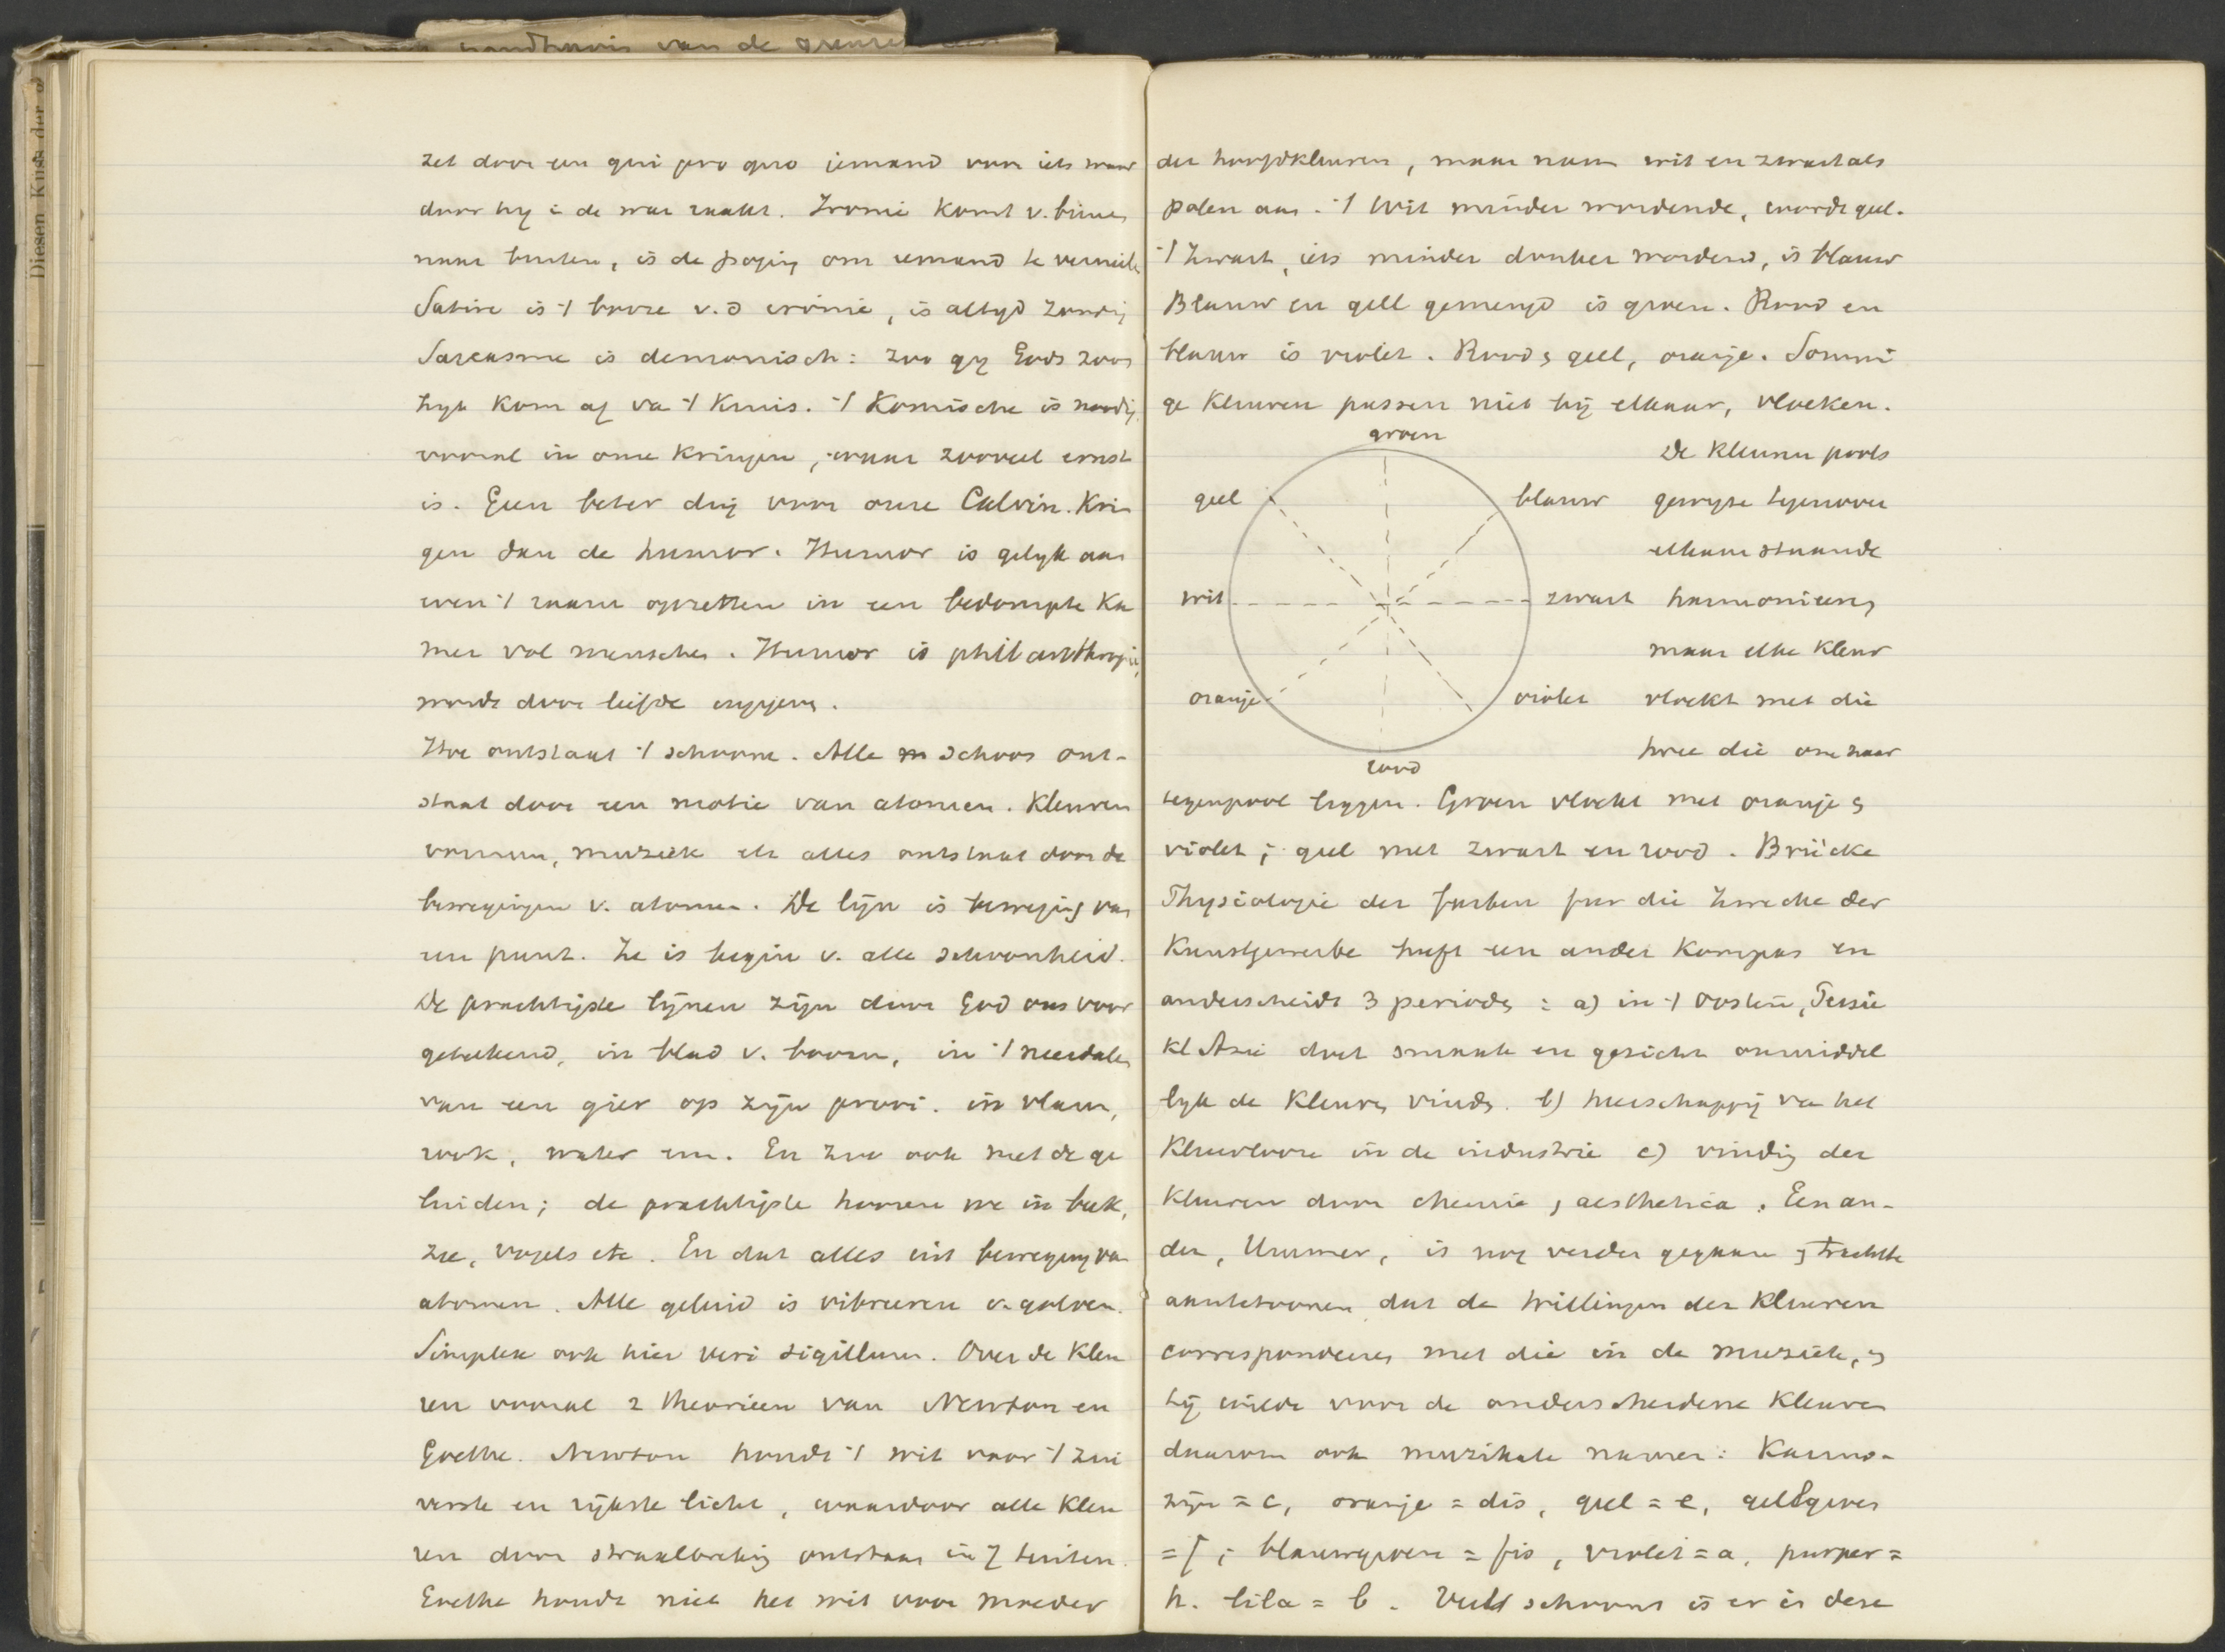 zet door een qui pro quo iemand voor iets waar
door hy i de war raakt. Ironie komt v. binnen
naar buiten, is de poging om iemand te verniele
Satire is 't booze v. d ironie, is altyd zondig
Sarcasme is demonisch: zoo gy Gods zoon
zyt kom af va 't kruis. 't Komische is noodig,
vooral in onze kringen, waar zooveel ernst
is. Geen beter ding voor onze Calvin. krin
gen dan de humor. Humor is gelyk aan
even 't raam opzetten in een bedompte ka
mer vol menschen. Humor is philanthropie,
wordt door liefde ingegeven.
Hoe ontstaat 't schoone. Alle schoon ont-
staat door een motie van atomen. Kleuren
vormen, muziek etc alles ontstaat door de
bewegingen v. atomen. De lijn is beweging van
een punt. Ze is begin v. alle schoonheid.
De prachtigste lijnen zijn door God ons voor
geteekend, in blad v. boom, in 't neerdalen
van een gier op zijn prooi. in vlam,
rook, water enz. En zoo ook met de ge
luiden; de prachtigste hooren we in beek,
zee, vogels etc. En dat alles uit beweging van
atomen. Alle geluid is vibreeren v. golven.
Simplex ook hier veri sigillum. Over de kleu
ren vooral 2 theorieen van Newton en
Goethe. Newton houdt 't wit voor 't zui
verste en rijkste licht, waardoor alle kleu
ren door straalbreking ontstaan in 7 tinten.
Goethe houdt niet het wit voor moeder
handhavin van de grenzen
Diesen Kust der
der hoofdkleuren, maar nam wit en zwart als
polen aan. 't Wit minder wordende, wordt geel.
't Zwart, iets minder donker wordend, is blauw
Blauw en gell gemengd is groen. Rood en
blauw is violet. Rood & geel, oranje. Sommi
ge kleuren passen niet bij elkaar, vloeken.
groen
De kleuren pools
geel blauw gewyze tegenover
elkaar staande
wit zwart harmonieeren
maar elke kleur
oranje violet vloekt met die
twee die om haar
rood
tegenpool liggen. Groen vloekt met oranje &
violet; geel met zwart en rood. Brücke
Physiologie der farben fur die Zwecke der
Kunstgewerbe heeft een ander kompas en
onderscheidt 3 perioden: a) in 't Oosten, Persie
Kl Azie doet smaak en gezicht onmiddel
lyk de kleuren vinden. b) heerschappij va het
kleurlooze in de industrie c) vinding der
kleuren door chemie, aesthetica. Een an-
der, Unmer, is nog verder gegaan & trachtte
aantetoonen dat de trillingen der kleuren
correspondeeren met die in de muziek, &
hij wilde voor de onderscheidene kleuren
daarom ook muzikale namen: Karmo-
zijn = c, oranje = dis, geel = e, geelgroen
= f; blauwgroen = fis, violet = a, purper =
h. lila = b. Veel schoons is er in deze